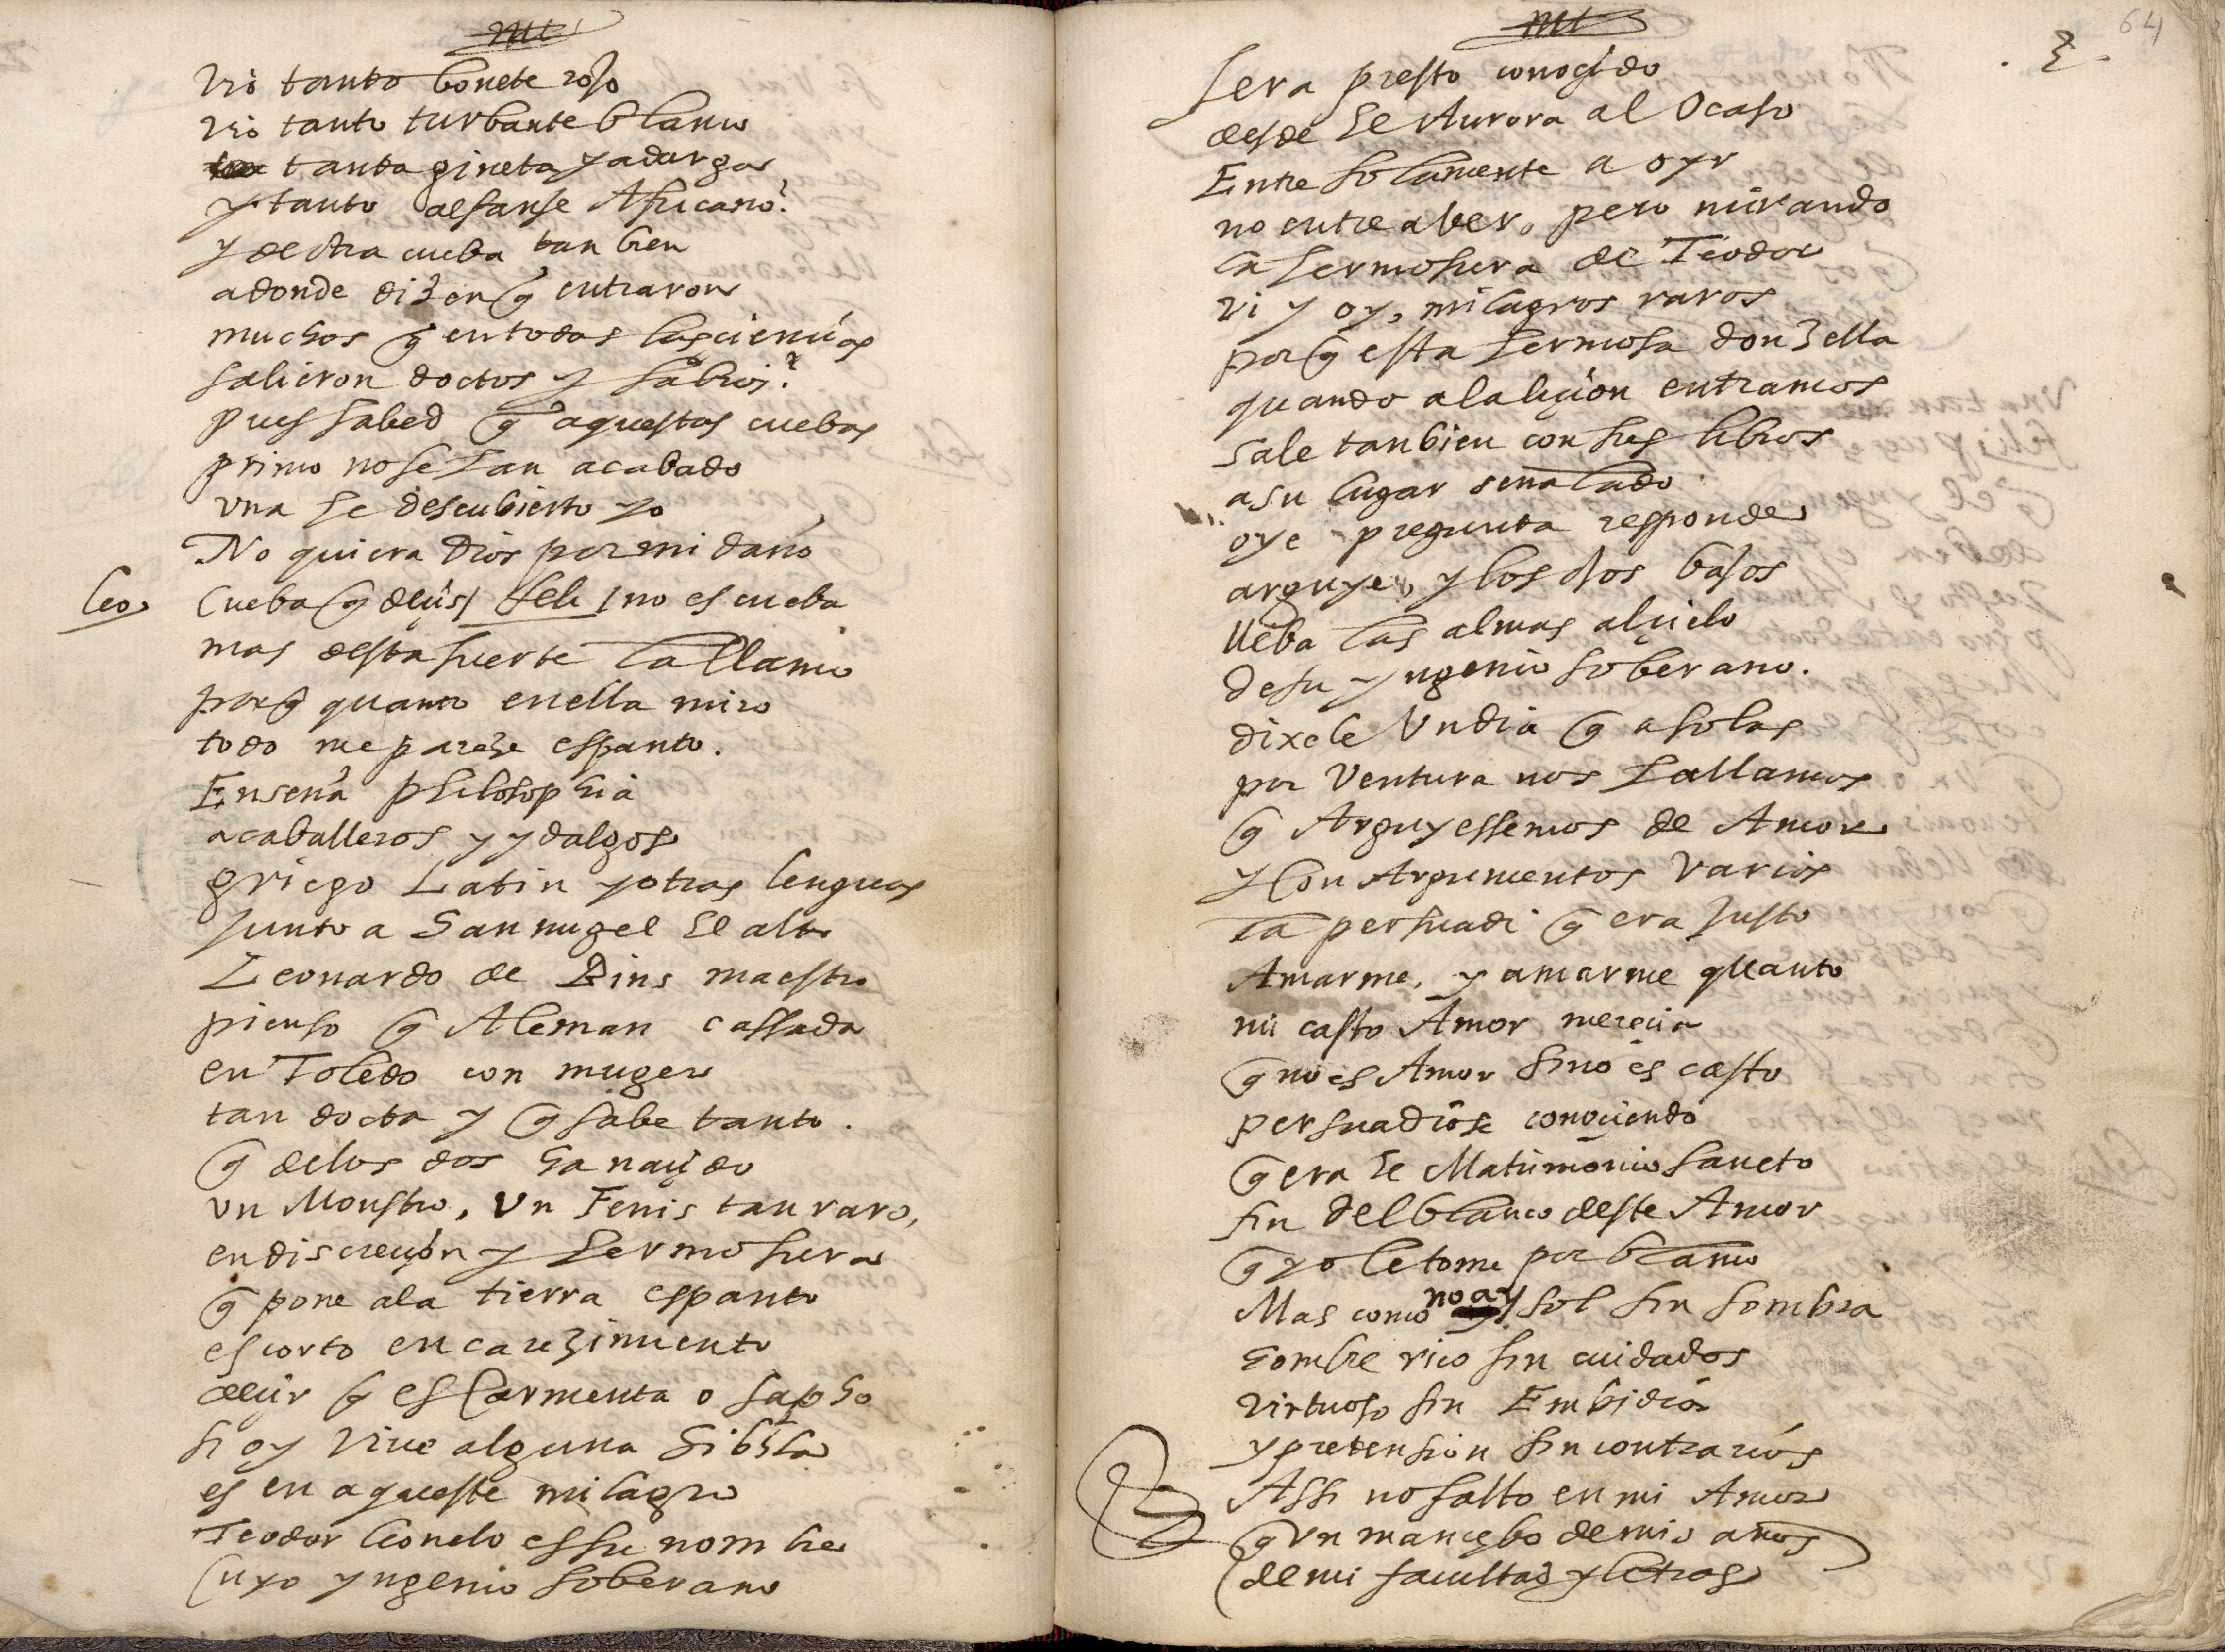 vio tanto bonete rojo
vio tanto turbante blanco
tanta gineta y adarga
y tanto alfanje Africano?
y de otra cueba tan bien
adonde dizen q̃ entraron
muchos q̃ en todas las ciencias
salieron doctos y sabios?
pues sabed q̃ aquestas cuebas
primo no se han acabado
una he descubierto yo
No quiera Dios por mi daño
Leo. Cueba q̃ decis/ Feli/ no es cueba
mas desta suerte la llamo
porq̃ quanto en ella miro
todo me pareze espanto.
Enseña philosophia
a caballeros y ydalgos
griego Latin y otras lenguas
Junto a San migel el alto
Leonardo de Bins maestro
pienso q̃ Aleman cassado
en Toledo con muger
tan docta y q̃ sabe tanto.
q̃ de los dos ha naçido
un Monstro, Un Fenis tan raro,
en discreçion y hermosura
q̃ pone a la tierra espanto
es corto encarezimiento
decir q̃ es Carmenta o sapho
si oy vive alguna Sibila
es en aqueste milagro
Teodor leonelo es su nombre
Cuyo yngenio soberano
Mt
64
Sera presto conocido
desde el Aurora al Ocaso
Entre solamente a oyr
no entre a ver, pero mirando
la hermosura de Teodor
vi y oy, milagros raros
porq̃ esta hermosa donzella
quando a la liçion entramos
sale tanbien con sus libros
a su lugar señalado
oye pregunta responde
arguye, y los ojos bajos
lleba las almas al çielo
de su yngenio soberano.
dixele Un dia q̃ a solas
por Ventura nos hallamos
q̃ Arguyessemos de Amor
y Con Argumentos Varios
la persuadi q̃ era Justo
Amarme, y amarme quanto
mi casto Amor mereçia
q̃ no es Amor sino es casto
persuadiose conoçiendo
q̃ era el Matrimonio sancto
fin del blanco deste Amor
q̃ yo le tome por blanco
Mas como no ay sol sin sombra
hombre rico sin cuidados
virtuoso sin Embidia
y pretension sin contrarios
Assi no falto en mi Amor
q̃ Un mançebo de mis años
de mi facultad y letras